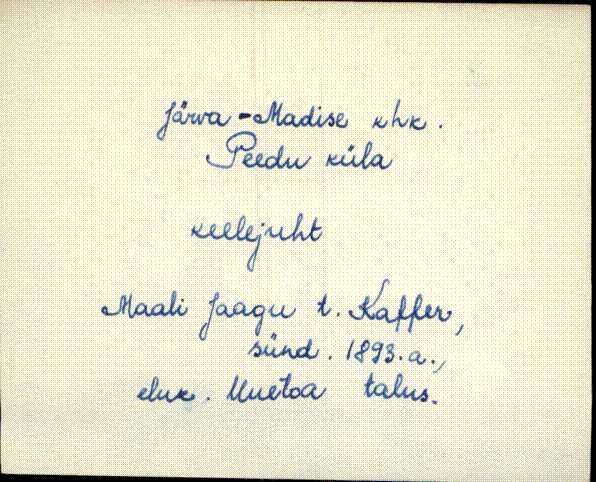 Järva-Madise khk.
Peedu küla
keelejuht
Maali Jaagu t. Kaffer,
sünd. 1893.a.,
eluk. Uuetoa talus.